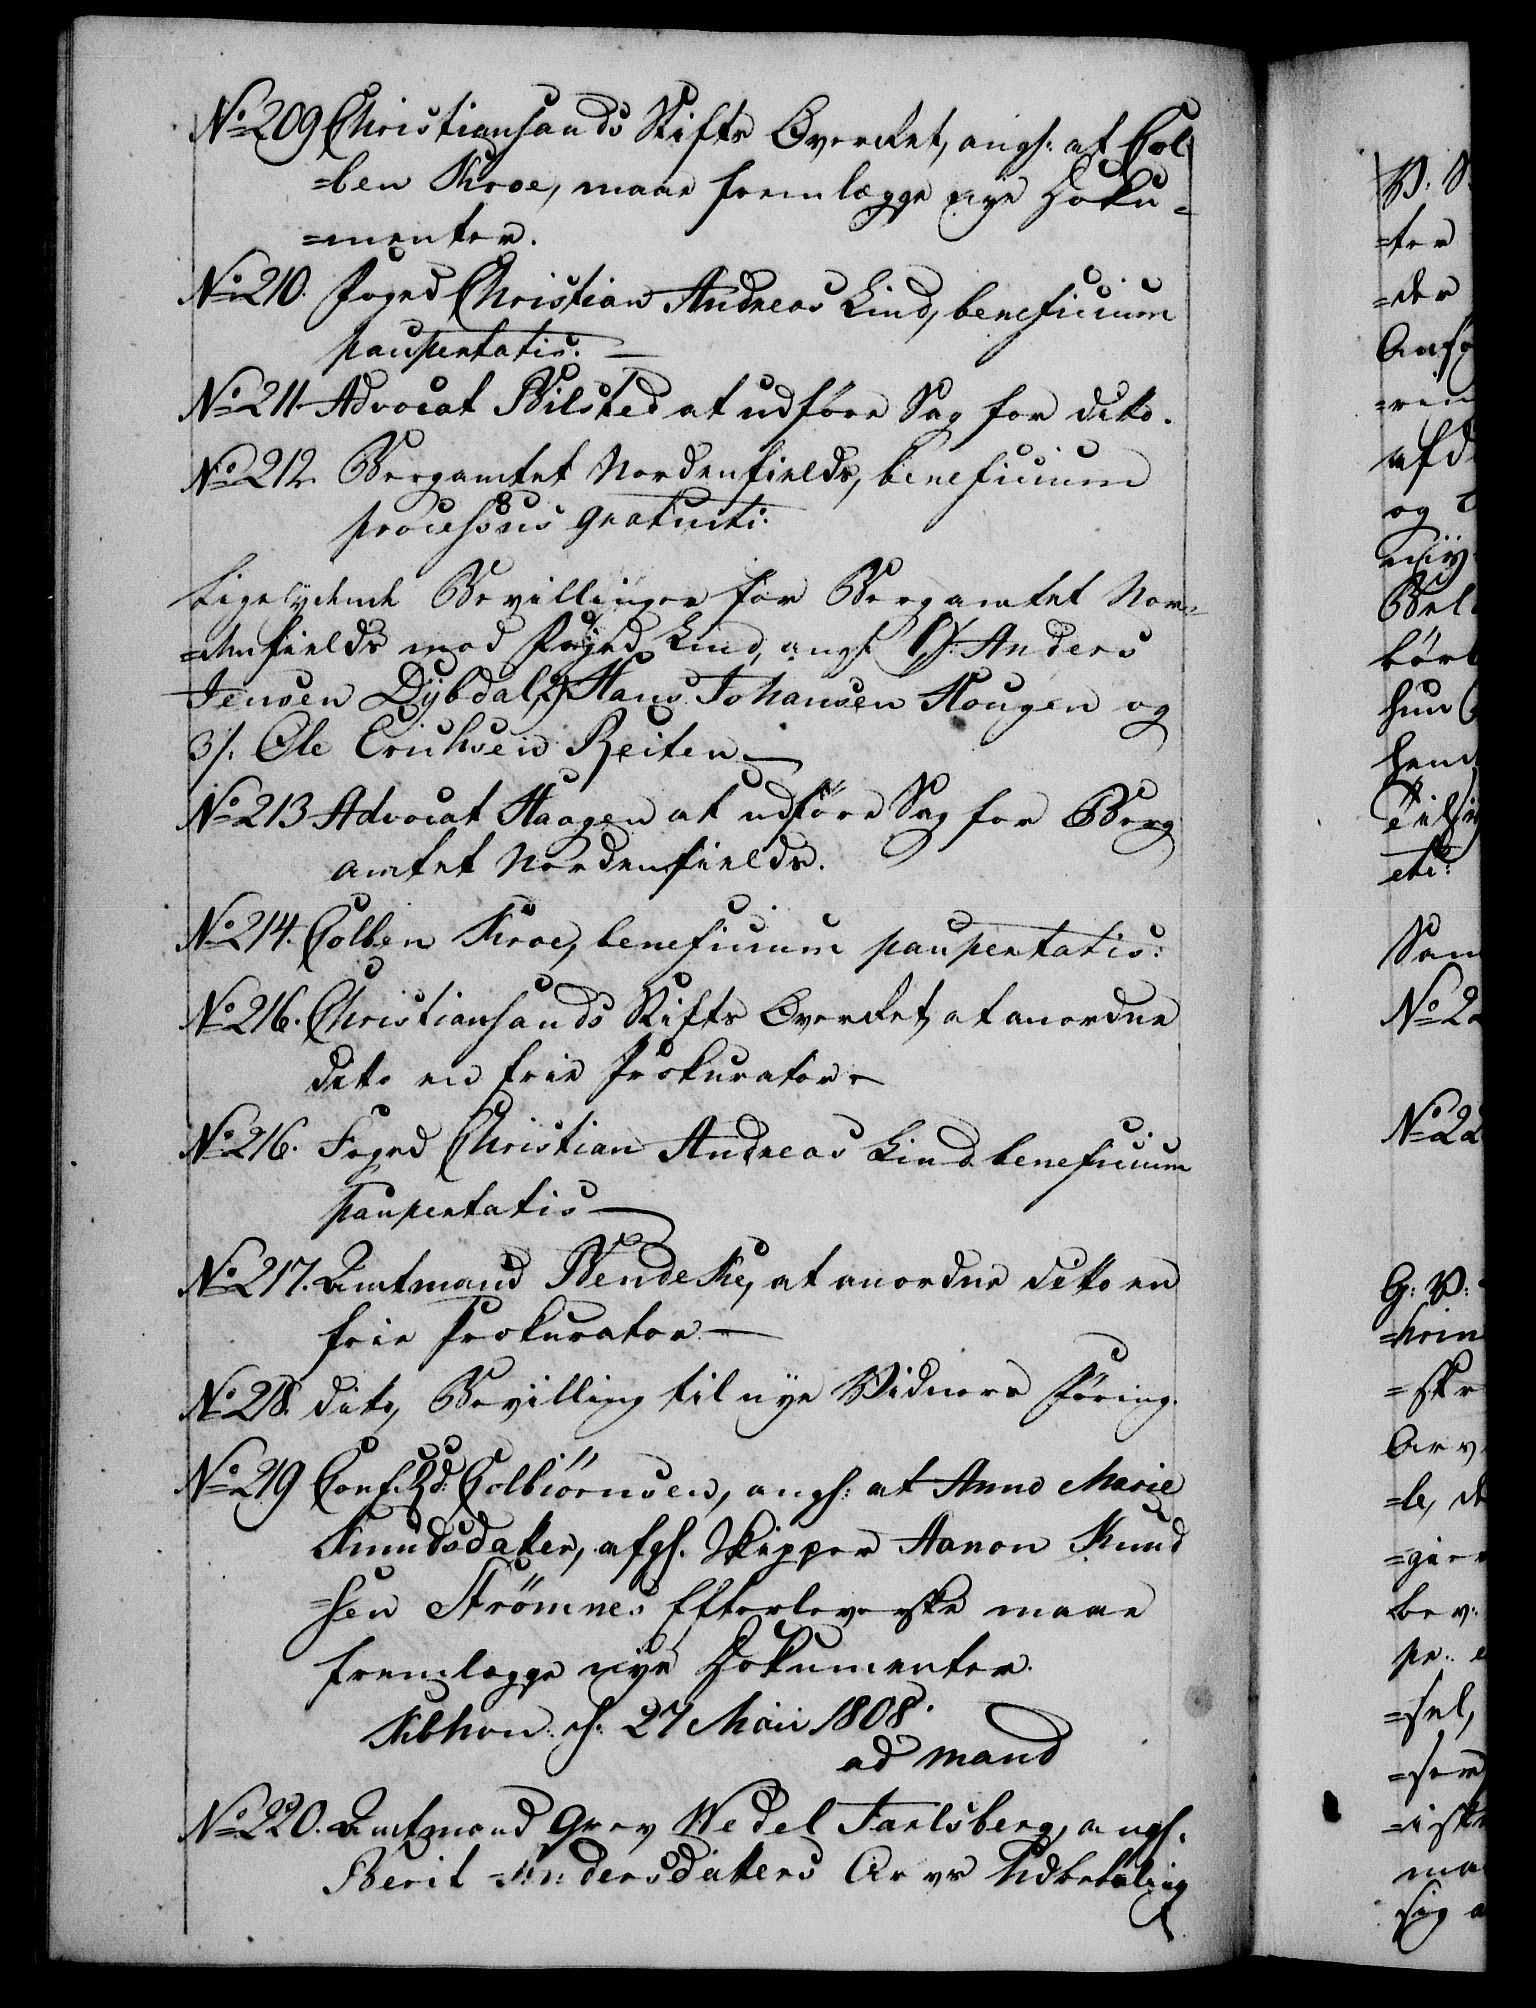 No 209 Christiansands Stifts Overret, angh: at Col¬
=ben Kroe, maae fremlægge nye Doku¬
=menter.
No 210. Foged Christian Andreas Lind, beneficium
paupertatis. —
No 211 Advocat Bilsted at udføre Sag for dito.
No 212. Bergamtet Nordenfields, beneficium
processus gratuiti.
Ligelydende Bevillinger for Bergamtet Nor¬
=denfields mod Foged Lind, angh: 1/: Anders
Jensen Dÿbdal, 2/ Hans Johansen Hougen og
3/: Ole Erichsen Reiten —
No 213 Advocat Haagen at udføre Sag for Berg
amtet Nordenfields.
No 214. Colben Kroe, beneficium paupertatis:
No 216. Christiansands Stifts Overret, at anordne
dito en frie Prokurator —
No 216. Foged Christian Andreas Lind beneficium
paupertatis —
No 217. Amtmand Bendeke, at anordne dito en
frie Prokurator —
No 218. dito, Bevilling til nye Vidners Føring.
No 219 Conf: Rd: Colbiörnsen, angh: at Anne Marie
Knudsdatter, afgh. Skipper Aanon Knud
=sen Strömnes Efterleverske maae
fremlægge nye Dokumenter.
Kbhvn d. 27 Maii 1808.
ad mand
No 220. Amtmand Grev Wedel Jarlsberg, angh.
Berit Andersdatters Arvs Udbetaling